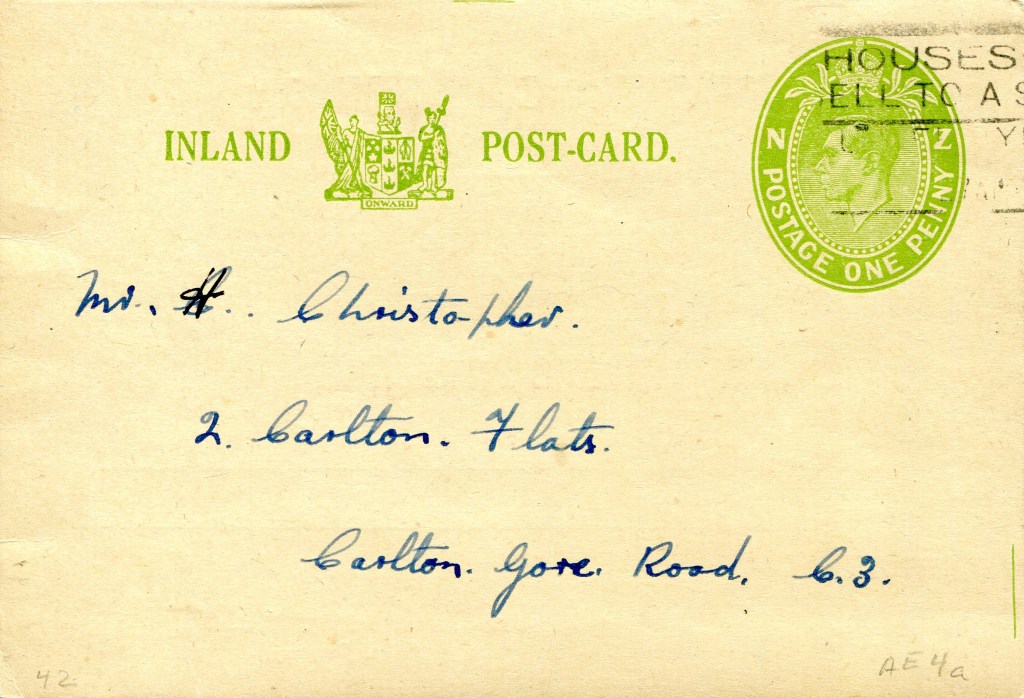 HOUSES
ELL TO A S
INLAND POST-CARD.
ONWARD
NZ NZ
POSTAGE ONE PENNY
Mr. H. Christopher.
2. Carlton. Flats.
Carlton. Gore. Road. C.3.
42
AE 4a